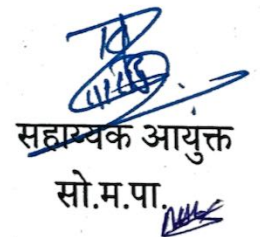 सहाय्यक आयुक्त
सो.म.पा.